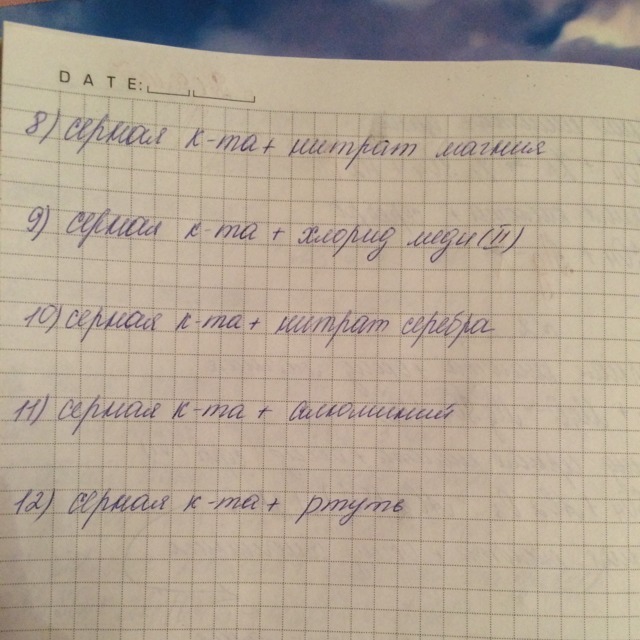 DATE:
8) серная к-та + нитрат магния
9) серная к-та + хлорид меди (II)
10) серная к-та + нитрат серебра
11) серная к-та + алюминий
12) серная к-та + ртуть